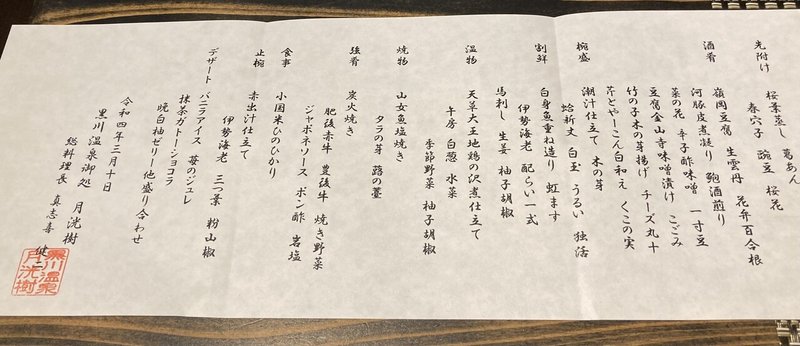 先附け 桜葉蒸し 葛あん
春穴子 豌豆 桜花
酒肴 嶺岡豆腐 生雲丹 花弁百合根
河豚皮煮凝り 鮑酒煎り
菜の花 辛子酢味噌 一寸豆
豆腐金山寺味噌漬け こごみ
竹の子木の芽揚げ チーズ丸十
芹とやーこん白和え くこの実
椀盛 潮汁仕立て 木の芽
蛤祈丈 白玉 うるい 独活
割鮮 白身魚重ね造り 虹ます
伊勢海老 配らい一式
馬刺し 生姜 柚子胡椒
温物 天草大王地鶏の沢煮仕立て
牛蒡 白葱 水菜
季節野菜 柚子胡椒
焼物 山女魚塩焼き
タラの芽 蕗の薹
強肴 炭火焼き
肥後赤牛 豊後牛 焼き野菜
ジャポネソース ポン酢 岩塩
食事 小国米ひのひかり
止椀 赤出汁仕立て
伊勢海老 三つ葉 粉山椒
デザート バニラアイス 苺のジュレ
抹茶ガトーショコラ
晩白柚ゼリー他盛り合わせ
令和四年三月十日
黒川温泉御処 月洸樹
総料理長 真志喜 健二
黒川温泉
月洸樹